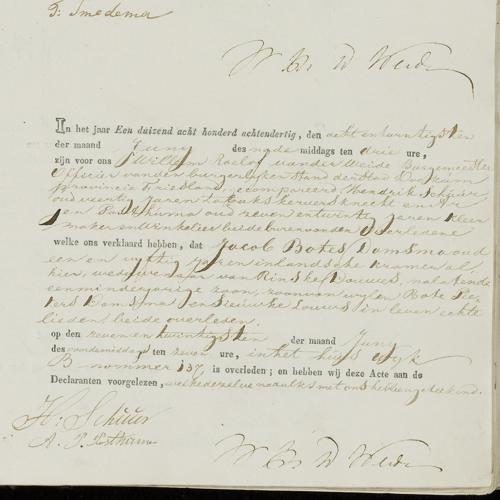 T: Smedema
W. Rs. v. d. Weide
In het jaar Een duizend acht honderd achtendertig, den acht en twintigsten
der maand Juny des na de middags ten drie ure,
zijn voor ons Willem Roelof van der Weide Burgemeester
Officier van den burgerlyken Stand der Stad Dockum
provincie Friesland, gecompareerd Hendrik Schuur
oud veertig Jaren tabakskerversknecht en Ar
jen P. Posthuma oud zeven en twintig jaren kleer
maker en winkelier beide buren van den Overledene
welke ons verklaard hebben, dat Jacob Botes Damsma oud
een en vyftig Jaren inlandsche kramer al
hier, weduwenaar van Rinske Douwes, nalatende
een minderjarige zoon, zoon van wylen Bote Pie
ters Damsma en Sieuwke Louws in leven echte
lieden, beide overleden.
op den zeven en twintigsten der maand Juny
des voordemiddags ten zeven ure, in het huis wyk
B nommer 137, is overleden; en hebben wij deze Acte aan de
Declaranten voorgelezen, welke dezelve naauwks met ons hebben geteekend.
H: Schuur
A. P. Posthuma
W. Rs. v. d. Weide